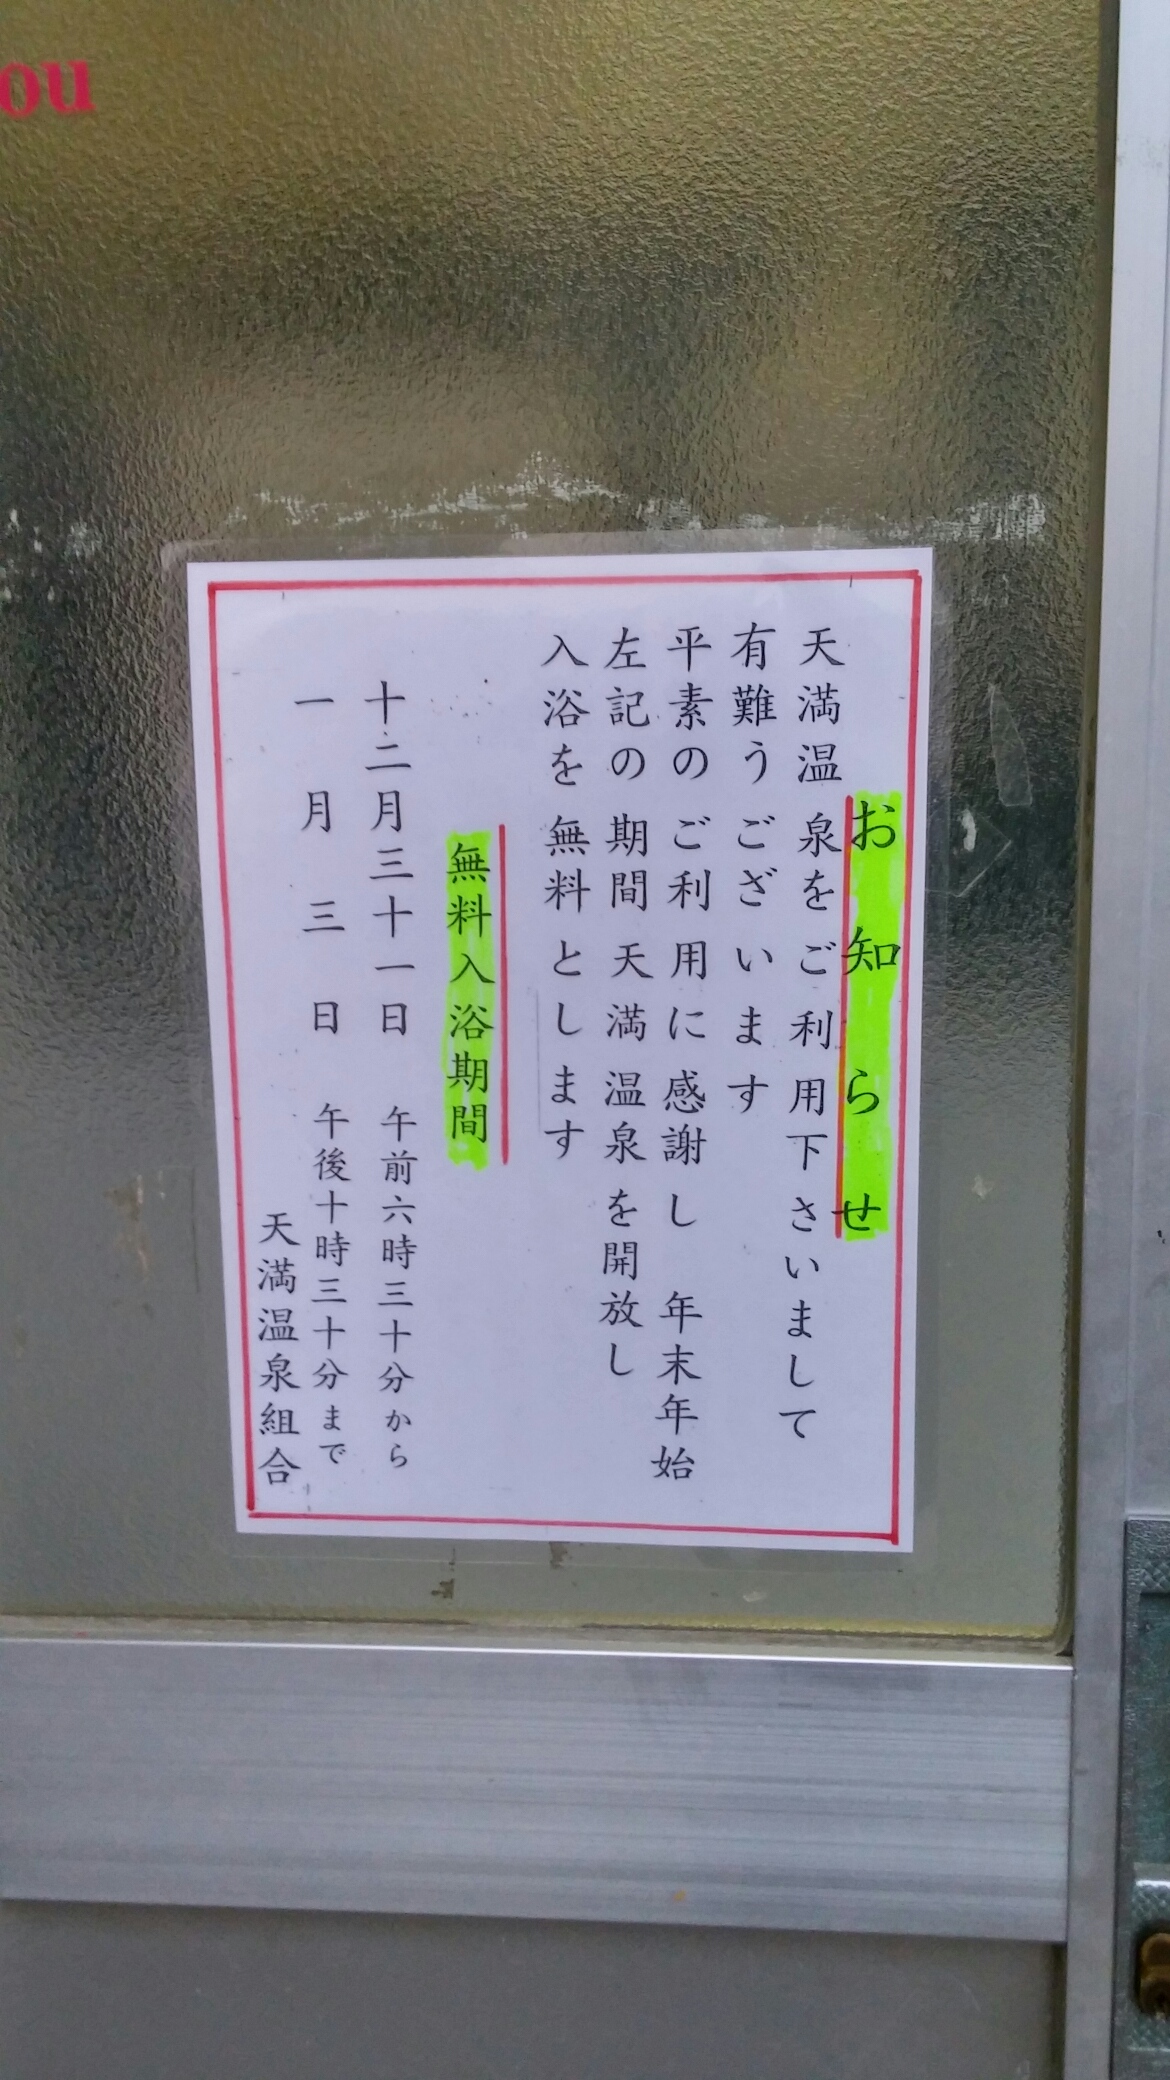 ou
お知らせ
天満温泉をご利用下さいまして
有難うございます
平素のご利用に感謝し 年末年始
左記の期間天満温泉を開放し
入浴を無料とします
無料入浴期間
十二月三十一日 午前六時三十分から
一月三日 午後十時三十分まで
天満温泉組合